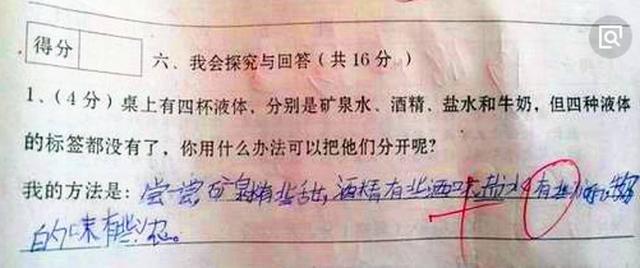 得分
六、我会探究与回答(共16分。)
1、(4分)桌上有四杯液体，分别是矿泉水、酒精、盐水和牛奶，但四种液体
的标签都没有了，你用什么办法可以把他们分开呢?
我的方法是: 尝尝，矿泉水有些甜，酒精有些酒味，盐水有些
的味有些浓。